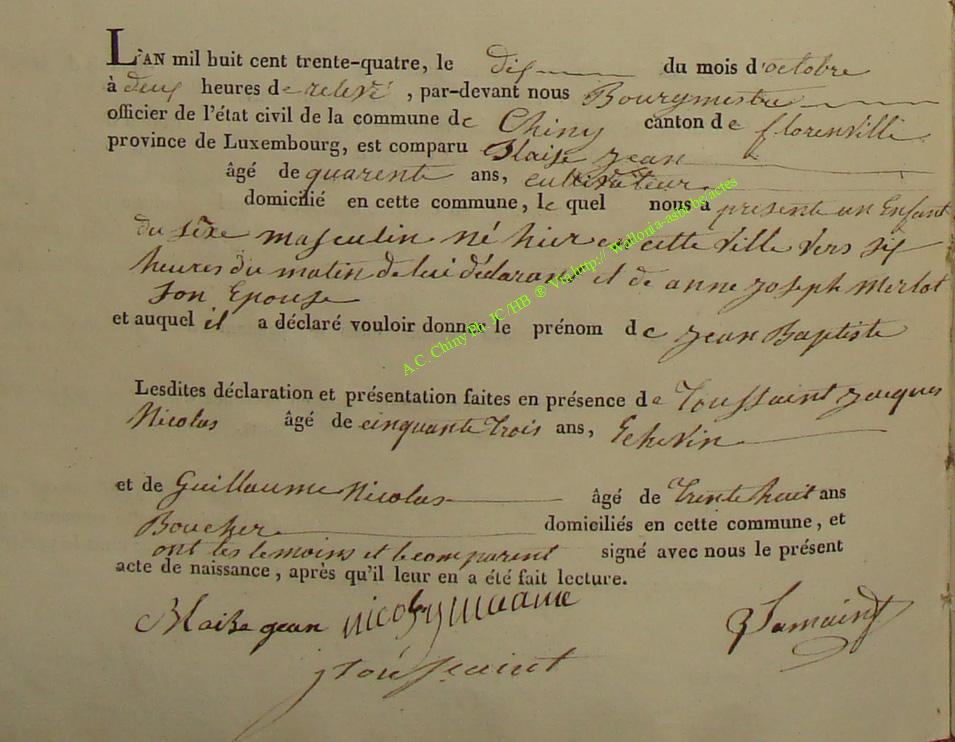 L'AN mil huit cent trente-quatre, le dix du mois d'octobre
à deux heures de relevé , par-devant nous Bourgmestre
officier de l'état civil de la commune de Chiny canton de florenville
province de Luxembourg, est comparu Blaise jean
âgé de quarente ans, cultivateur
domicilié en cette commune, le quel nous a présenté un Enfant
du séxe masculin né hier en cette ville vers six
heures du matin de lui déclarant et de anne joseph Merlot
son Epouse
et auquel il a déclaré vouloir donner le prénom de jean Baptiste
Lesdites déclaration et présentation faites en présence de Toussaint jacques
Nicolas âgé de cinquante trois ans, Echevin
et de Guillaume Nicolas âgé de trente huit ans
Boucher domiciliés en cette commune, et
ont les temoins et le comparent signé avec nous le présent
acte de naissance, après qu'il leur en a été fait lecture.
Blaise jean
jtousseaint
A.C. Chiny Ph. JC /HB ® Via http:// Wallonia-asbl.be/actes